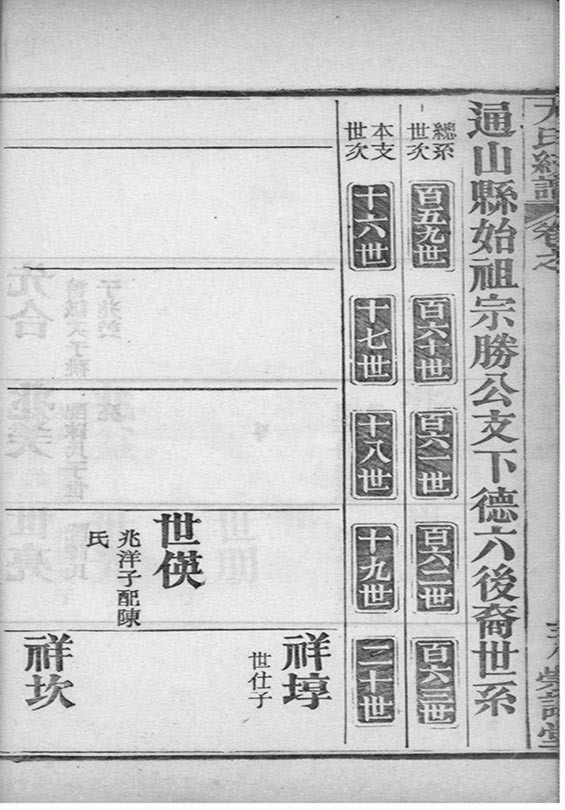 卷之
通山縣始祖宗勝公支下德六後裔世系
總系
世次
百五九世
百六十世
百六一世
百六二世
百六三世
本支
世次
十六世
十七世
十八世
十九世
二十世
祥埻
世仕子
世偀
兆洋子配陳
氏
祥坎